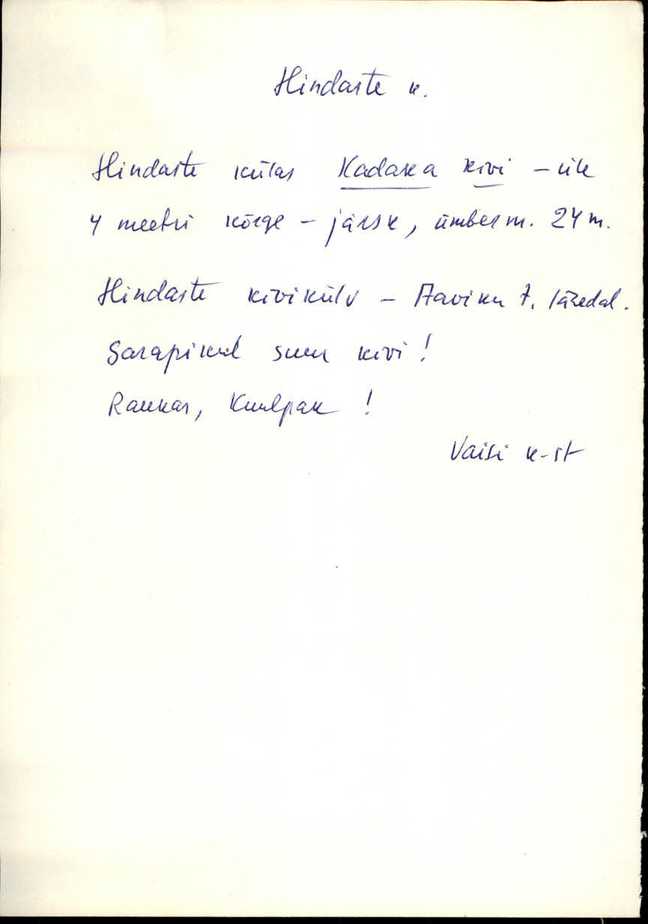 Hindaste k.
Hindaste külas Kadaka kivi – üle
4 meetri kõrge – järsk, ümberm. 24 m.
Hindaste kivikülv – Aaviku t. lähedal.
Sarapikul suur kivi!
Raukas, Kuulpak !
Vaisi k-st